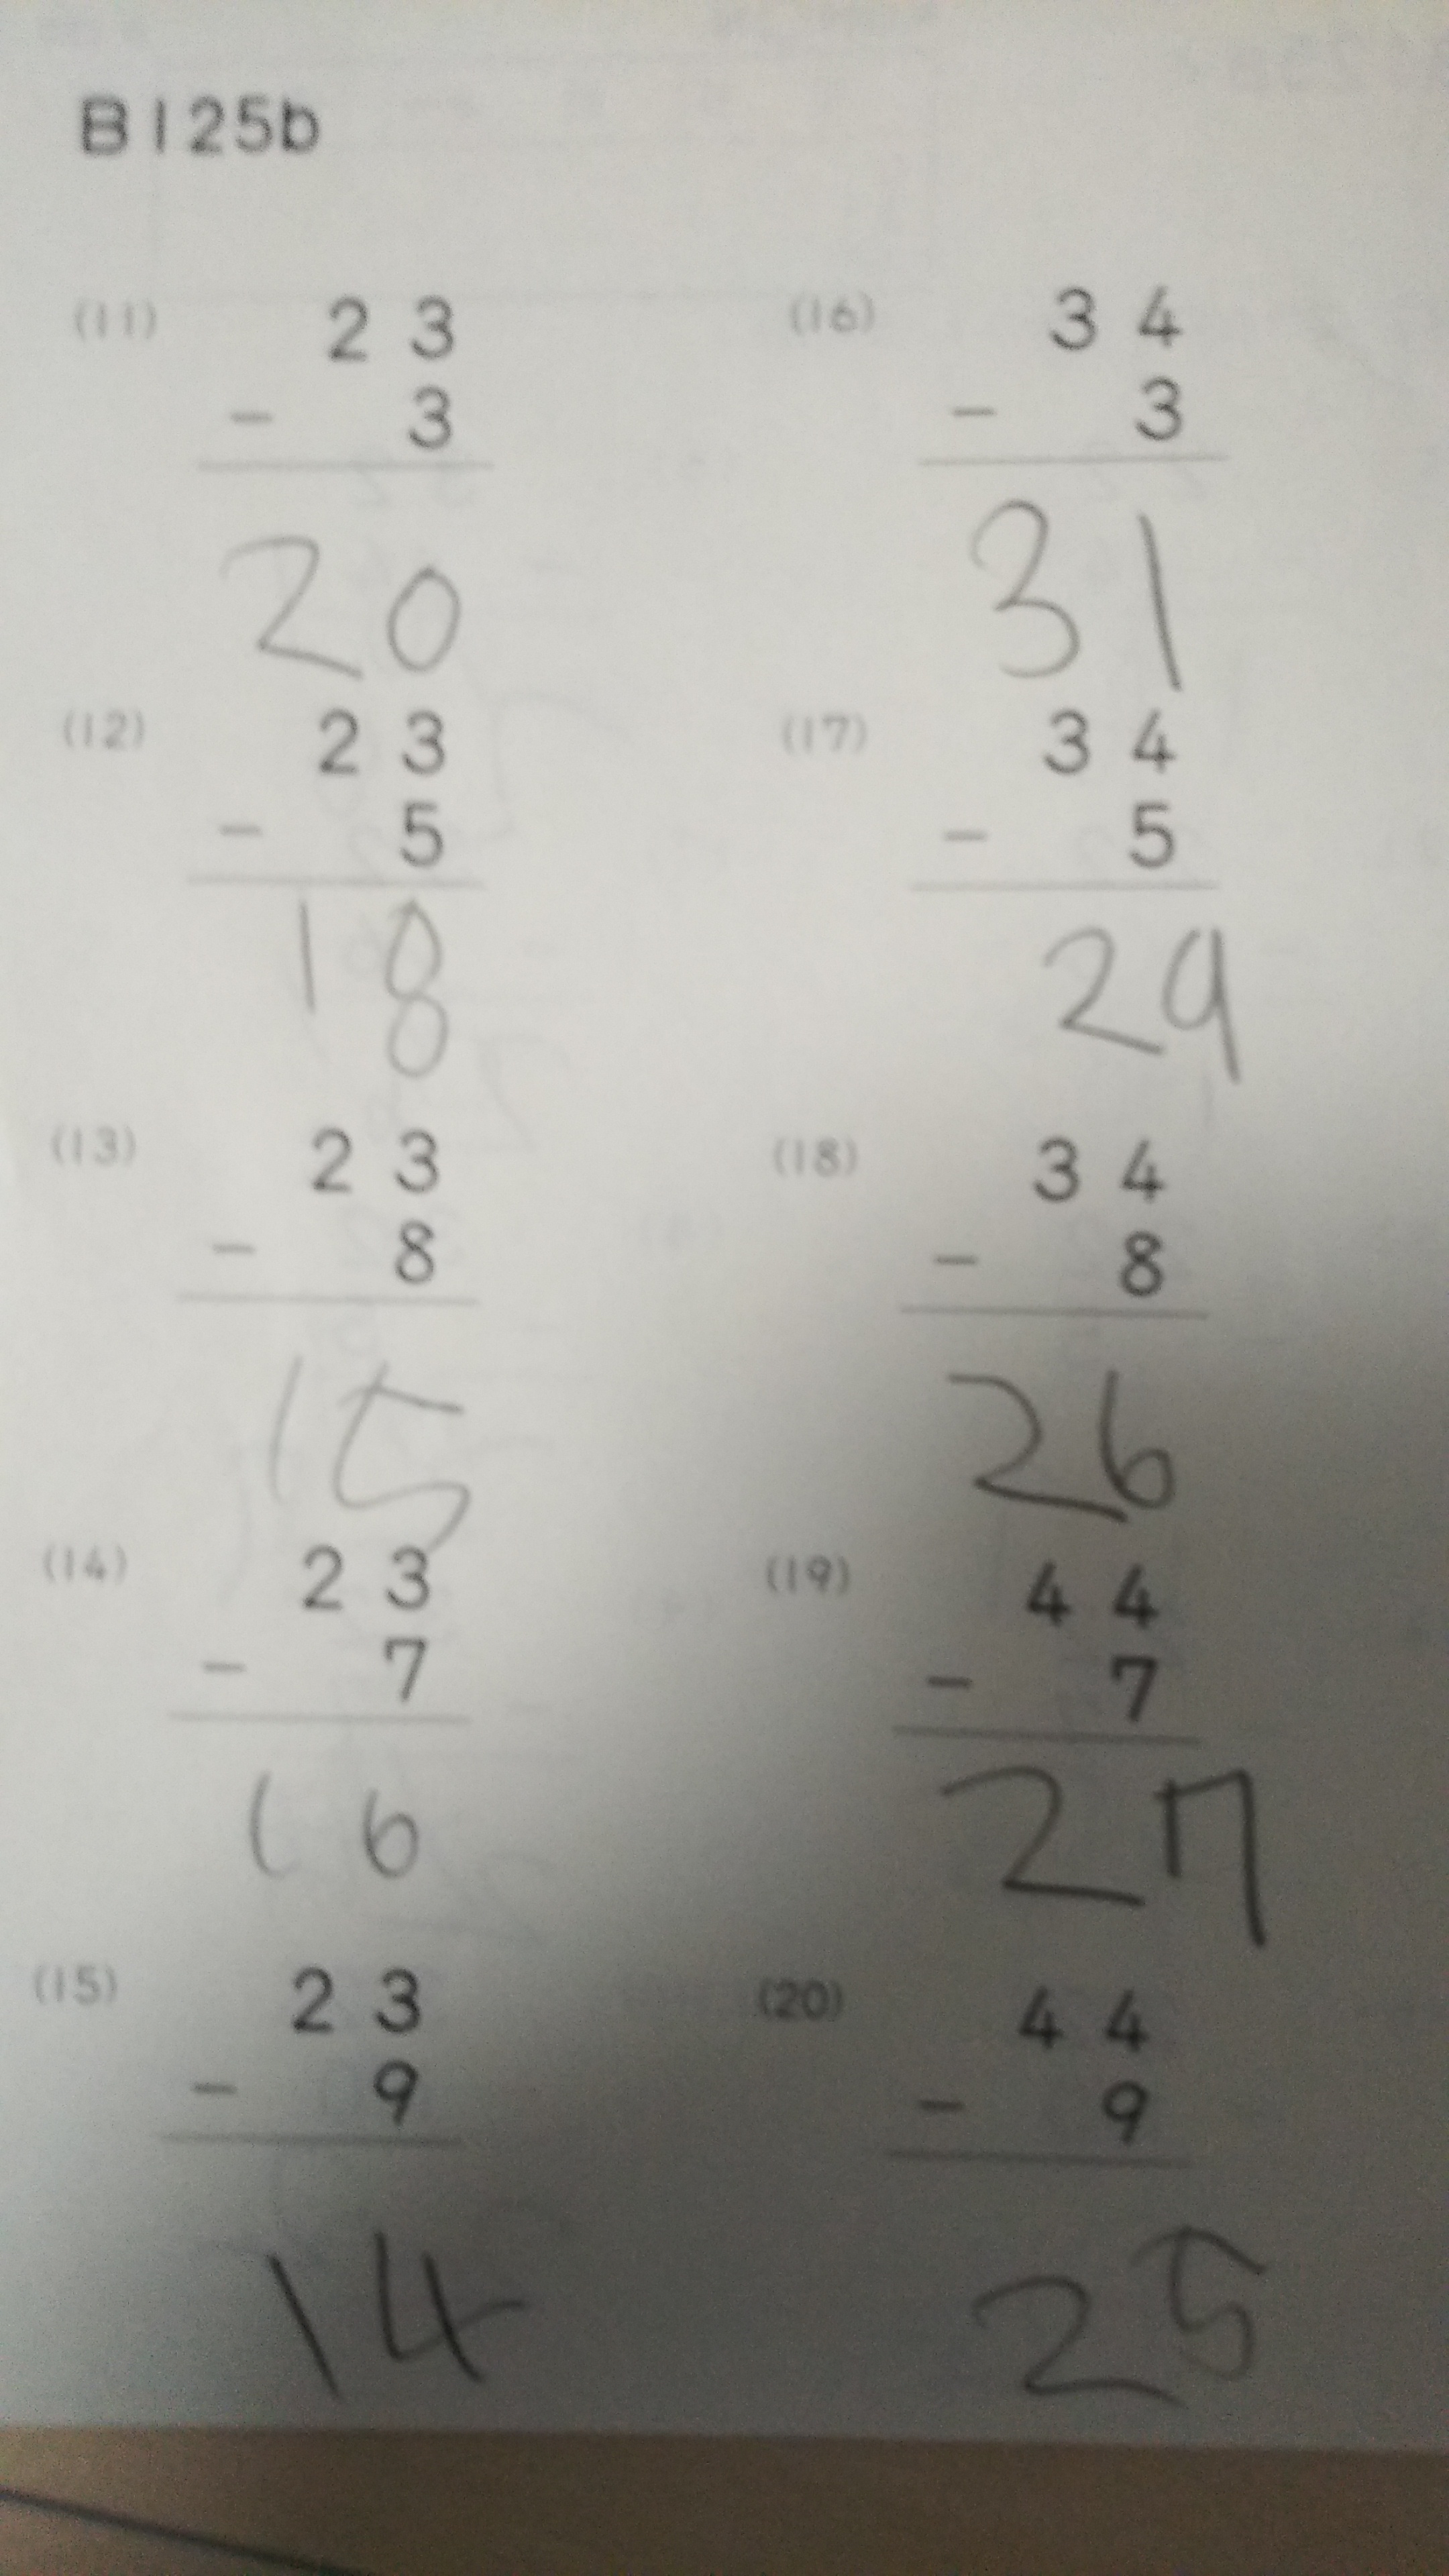 B125b
(11) 23
- 3
20
(12) 23
- 5
18
(13) 23
- 8
15
(14) 23
- 7
16
(15) 23
- 9
14
(16) 34
- 3
31
(17) 34
- 5
29
(18) 34
- 8
26
(19) 44
- 7
27
(20) 44
- 9
25